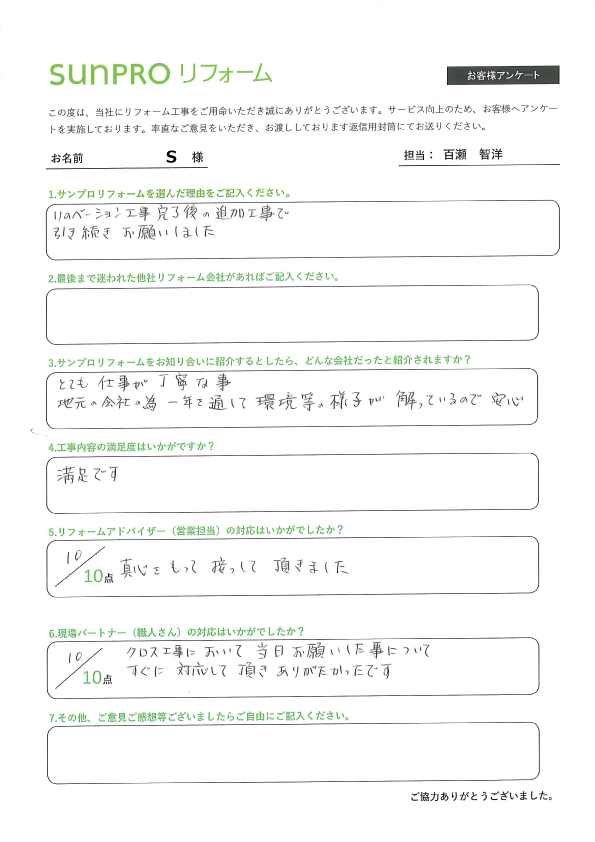 sunPRO リフォーム
お客様アンケート
この度は、当社にリフォーム工事をご用命いただき誠にありがとうございます。サービス向上のため、お客様へアンケー
トを実施しております。率直なご意見をいただき、お渡ししております返信用封筒にてお送りください。
お名前 S 様
担当： 百瀬 智洋
1.サンプロリフォームを選んだ理由をご記入ください。
リノベーション工事完了後の追加工事で
引き続き お願いしました
2.最後まで迷われた他社リフォーム会社があればご記入ください。
3.サンプロリフォームをお知り合いに紹介するとしたら、どんな会社だったと紹介されますか？
とても 仕事が 丁寧な事
地元の会社の為 一年を通して 環境等の様子が 解っているので 安心
4.工事内容の満足度はいかがですか？
満足です
5.リフォームアドバイザー（営業担当）の対応はいかがでしたか？
10/10点 真心をもって 接っして 頂きました
6.現場パートナー（職人さん）の対応はいかがでしたか？
クロス工事において 当日 お願いした事について
10/10点 すぐに 対応して 頂き ありがたかったです
7.その他、ご意見ご感想等ございましたらご自由にご記入ください。
ご協力ありがとうございました。